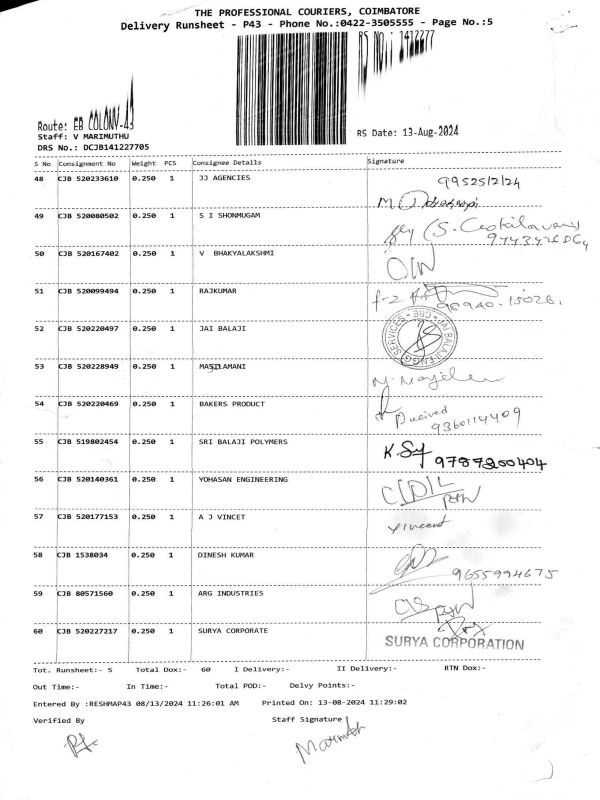 THE PROFESSIONAL COURIERS, COIMBATORE
Delivery Runsheet - P43 - Phone No.:0422-3505555 - Page No.:5
RS No.: 1412277
Route: EB COLONY-43
Staff: V MARIMUTHU
DRS No.: DCJB141227705
RS Date: 13-Aug-2024
S No Consignment No Weight PCS Consignee Details Signature
48 CJB 520233610 0.250 1 JJ AGENCIES
49 CJB 520080502 0.250 1 S I SHONMUGAM
50 CJB 520167402 0.250 1 V BHAKYALAKSHMI
51 CJB 520099494 0.250 1 RAJKUMAR
52 CJB 520220497 0.250 1 JAI BALAJI
53 CJB 520228949 0.250 1 MASILAMANI
54 CJB 520220469 0.250 1 BAKERS PRODUCT
9360114409
55 CJB 519802454 0.250 1 SRI BALAJI POLYMERS K. Sy
9787300404
56 CJB 520140361 0.250 1 YOHASAN ENGINEERING
57 CJB 520177153 0.250 1 A J VINCET
Vincent
58 CJB 1538034 0.250 1 DINESH KUMAR
9655994675
59 CJB 80571560 0.250 1 ARG INDUSTRIES
60 CJB 520227217 0.250 1 SURYA CORPORATE
SURYA CORPORATION
Tot. Runsheet:- 5 Total Dox:- 60 I Delivery:- II Delivery:- RTN Dox:-
Out Time:- In Time:- Total POD:- Delvy Points:-
Entered By :RESHMAP43 08/13/2024 11:26:01 AM Printed On: 13-08-2024 11:29:02
Verified By Staff Signature